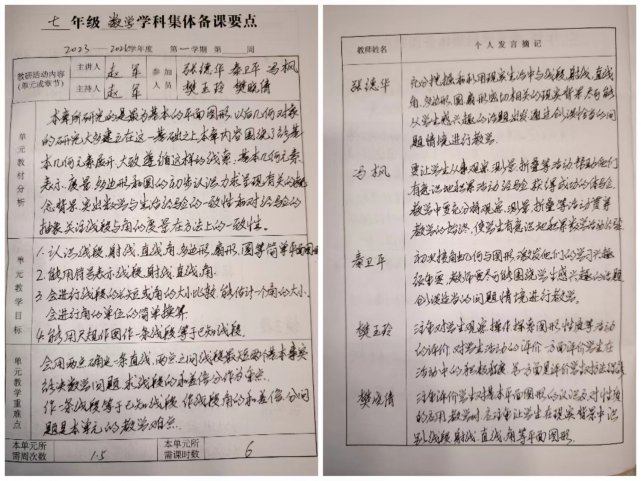 七 年级 数学 学科集体备课要点
2023—2024学年度 第一学期 第 周
教研活动内容
(单元或章节)
主讲人 赵军
主持人 赵军
参加人员
张德华 秦卫平 冯枫
樊玉玲 樊晓倩
单元教材分析
本章所研究的是最为基本的平面图形,以后几何对象
的研究大多建立在这一基础之上本章内容围绕
基本几何元素展开,大致遵循这样的线索,基本几何元素
表示、度量、多边形和圆的初步认识,力求呈现有关的概
念背景,突出数学与生活经验的一致性和对经验的
抽象关注线段与角的度量在方法上的一致性。
单元教学目标
1.认识线段、射线、直线、角、多边形、扇形、圆等简单平面图形
2.能用符号表示线段、射线、直线、角.
3.会进行线段的长短或角的大小比较,能估计一个角的大小,
会进行角的单位的简单换算.
4.能用尺规作图作一条线段等于已知线段.
单元教学重难点
会用两点确定一条直线,两点之间线段最短两个基本事实
解决数学问题,求线段的和差倍分作为重点.
作一条线段等于已知线段,作线段角的和差倍分问
题是本单元的教学难点.
本单元所需周次数 1.5
本单元所需课时数 6
教师姓名 个人发言摘记
张德华
充分挖掘和利用现实生活中与线段,射线,直线
角,多边形,圆,扇形密切相关的现实背景尽可能
从学生感兴趣的话题出发,通过创设恰当的问
题情境进行教学.
冯枫
要让学生从事观察、测量、折叠等活动帮助他们
有意识地积累活动经验,获得成功的体验.
教学中要充分将观察、测量、折叠等活动贯穿
教学的始终,使学生有意识地积累数学活动经验
秦卫平
初次接触几何与图形,激发他们的学习兴趣
很重要,教师要尽可能围绕学生感兴趣的话题
创设适当的问题情境进行教学.
樊玉玲
注重对学生观察、操作、探索图形性质等活动
的评价,对学生活动的评价一方面评价学生在
活动中的积极程度,另一方面是评价学生
樊晓倩
注重评价学生对基本平面图形的认识及对性质
的应用,教学时应注重让学生在现实背景中识
别线段、射线、直线、角等平面图形.